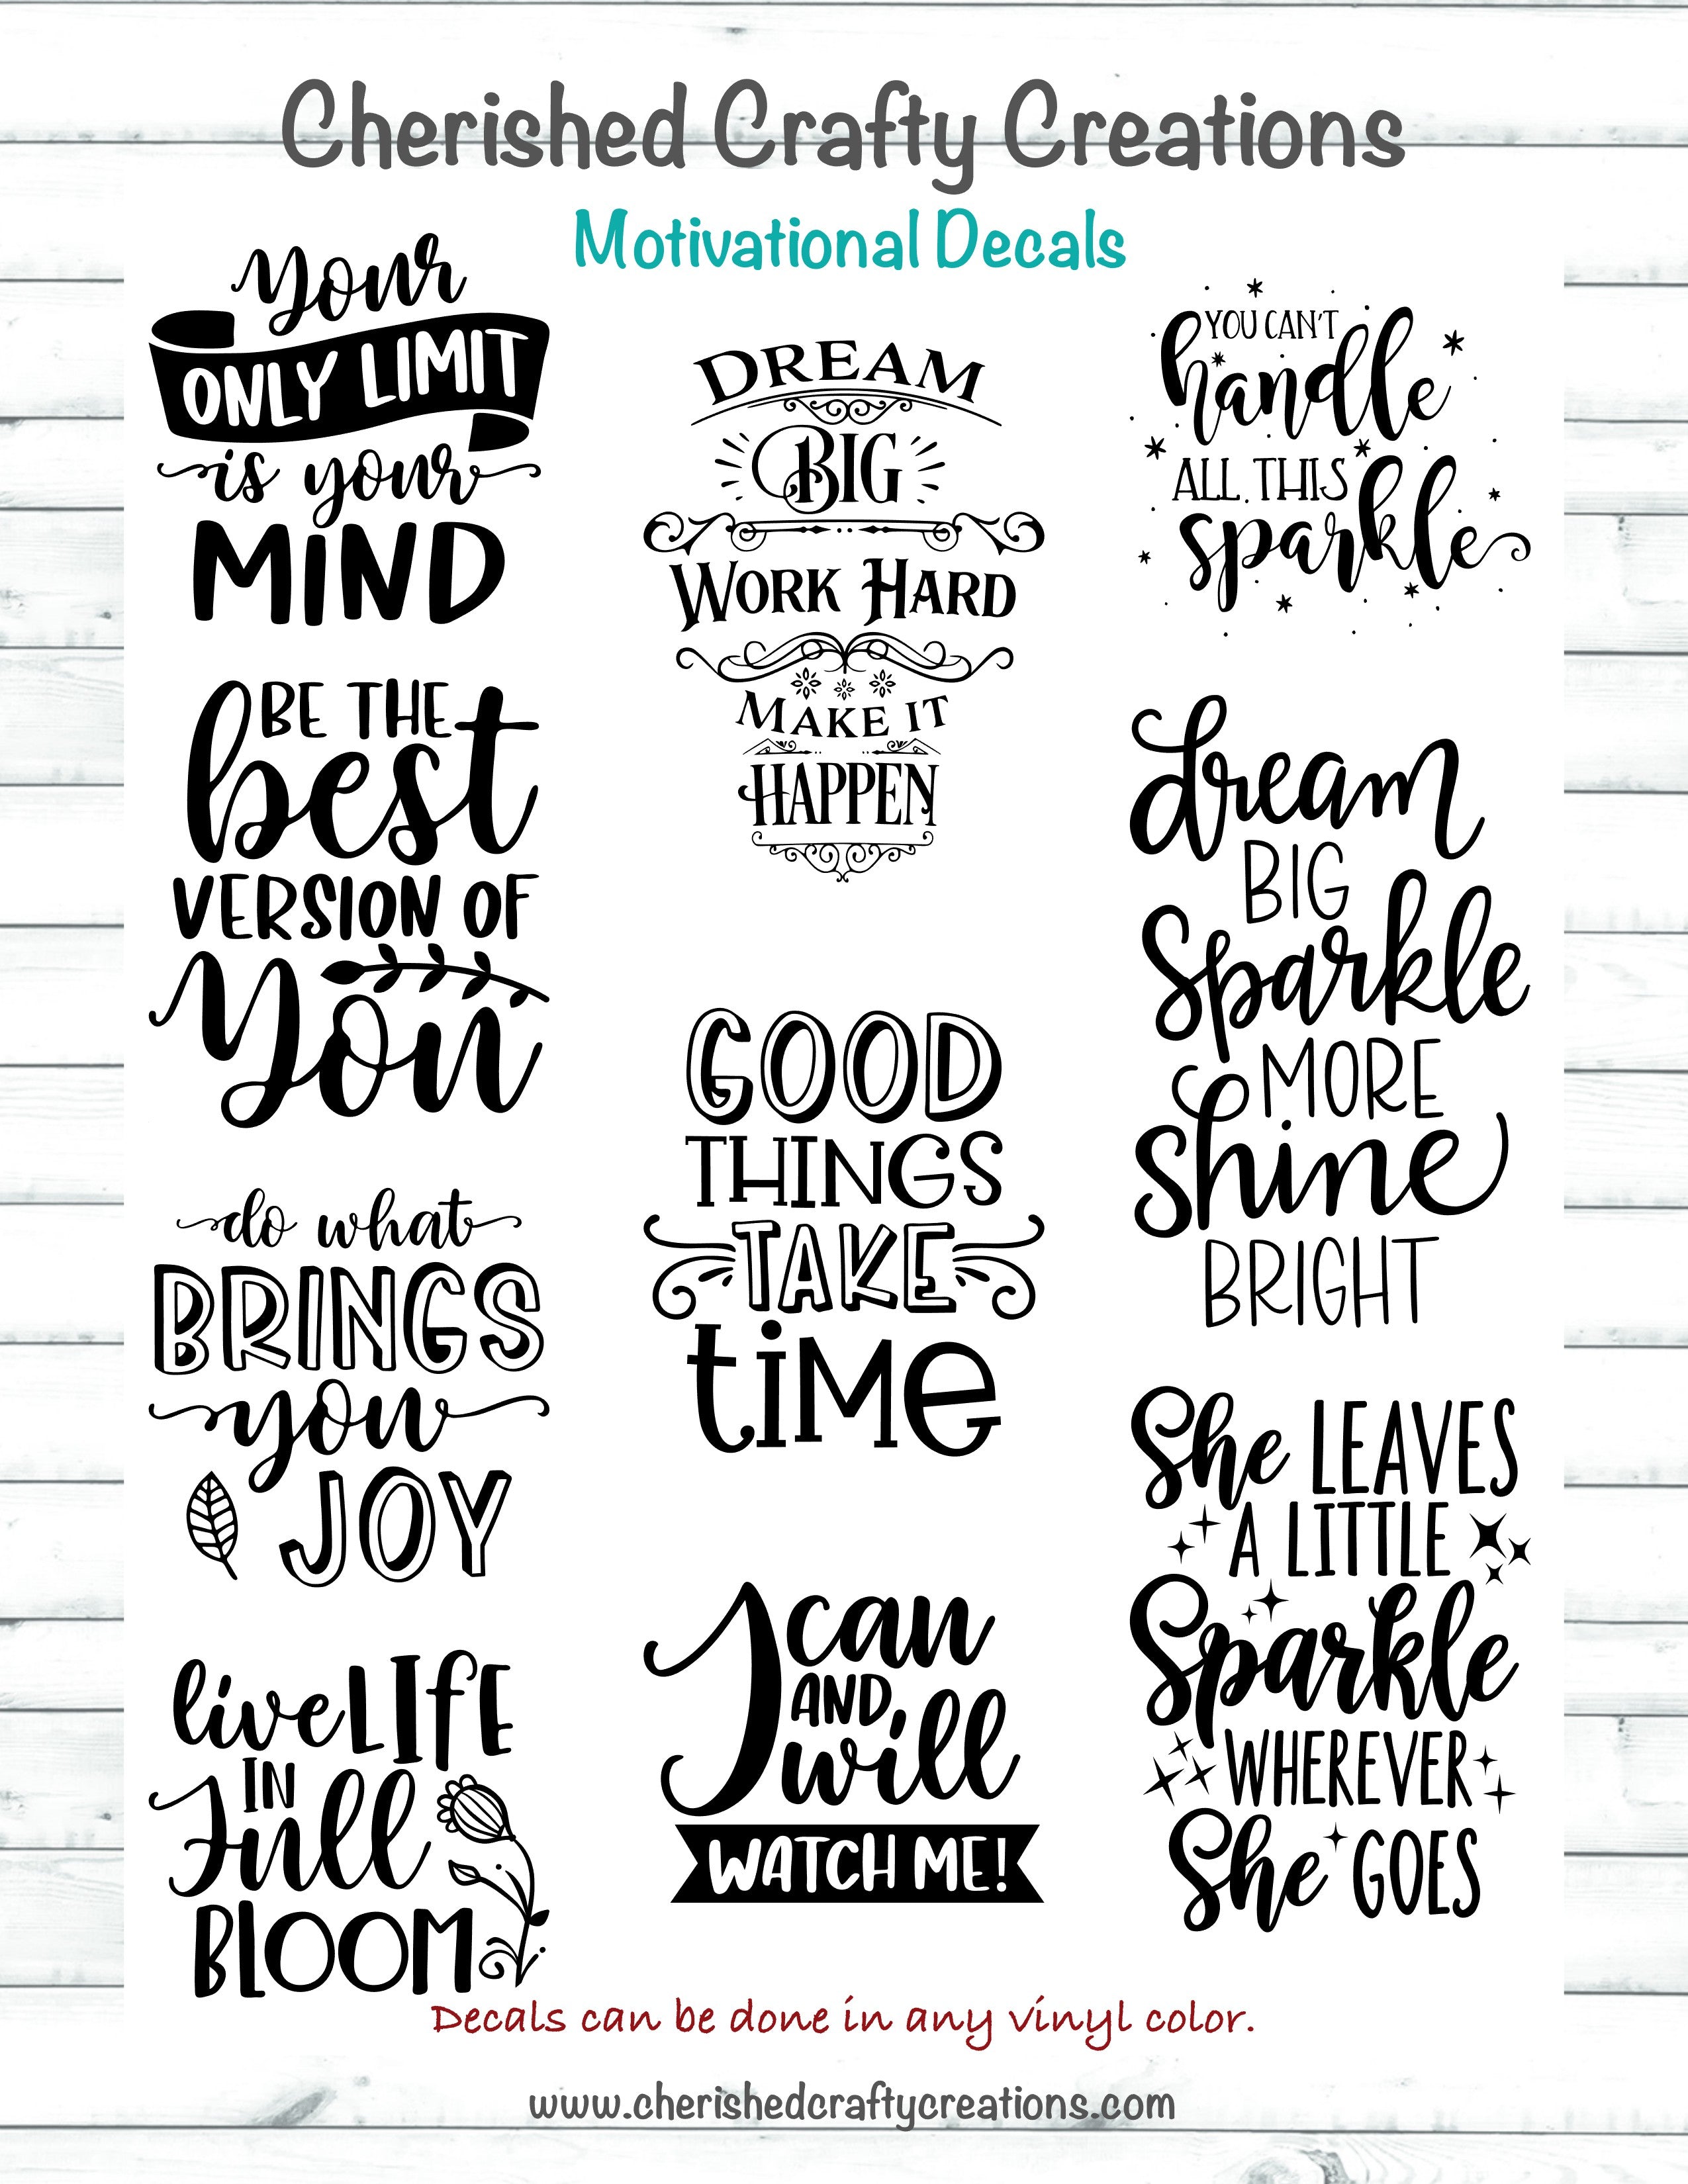 Cherished Crafty Creations
Motivational Decals
Your
ONLY LIMIT
is your
MiND
BE THE
best
VERSION OF
You
do what
BRINGS
you
JOY
live LIfE
IN
Full
BlOOM
DREAM
BIG
WORK HARD
MAKE IT
HAPPEN
GOOD
THINGS
TAKE
tiMe
I can
AND
will
WATCH ME!
YOU CAN'T
handle
ALL THIS
sparkle
dream
BIG
Sparkle
MORE
Shine
BRIGHT
She LEAVES
A LITTLE
Sparkle
WHEREVER
She GOES
Decals can be done in any vinyl color.
www.cherishedcraftycreations.com